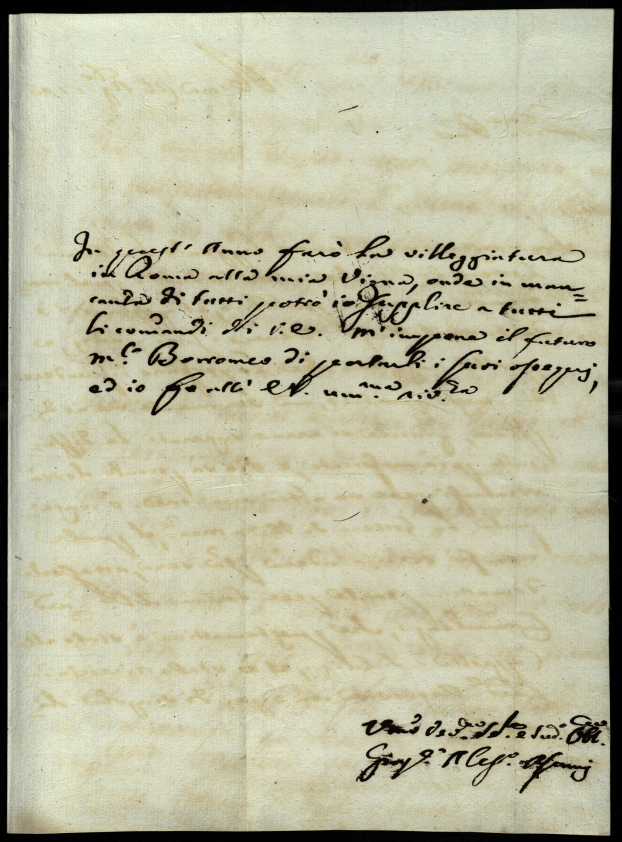 In quest' Anno farò la villeggiatura
in Roma alla mia Vigna, onde in man=
canza di tutti potrò io supplire a tutti
li comandi di V. E. M'impone il futuro
M.r Borromeo di portarli i suoi ossequj,
ed io fo all' E.V. um.ma riv.za
Um.o dev.o e